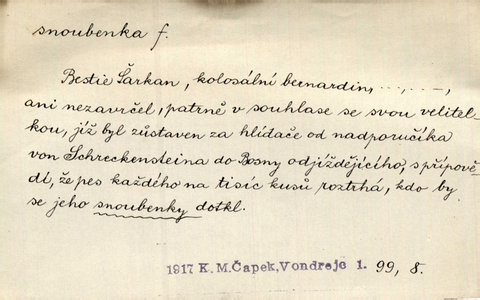 snoubenka f.
Bestie Šarkan, kolosální bernardin, ..., ---,
ani nezavrčel, patrně v souhlase se svou velitel-
kou, jíž byl zůstaven za hlídače od nadporučíka
von Schreckensteina do Bosny odjíždějícího, s přípově-
dí, že pes každého na tisíc kusů roztrhá, kdo by
se jeho snoubenky dotkl.
1917 K.M.Čapek,Vondrejc 1. 99, 8.